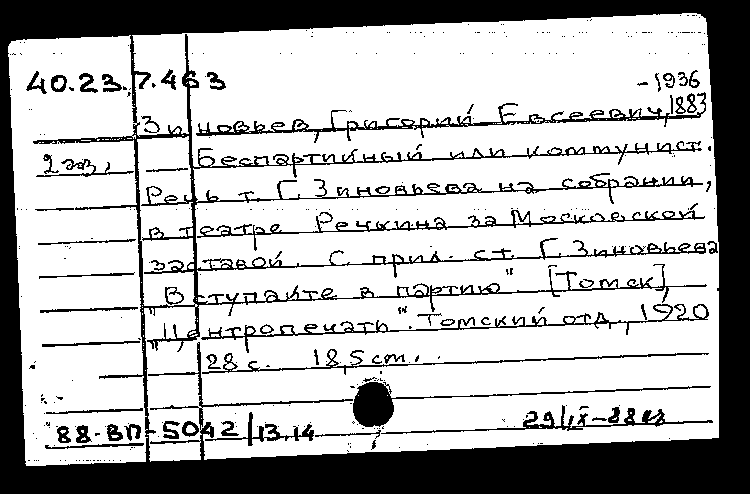 40.23.7.463
-1936
Зиновьев, Григорий Евсеевич, 1883
2 экз. Беспартийный или коммунист.
Речь т. Г. Зиновьева на собрании,
в театре Речкина за Московской
заставой. С прил. ст. Г. Зиновьева
"Вступайте в партию". [Томск],
"Центропечать". Томский отд., 1920
28 с. 18,5 cm.
88-ВП-5042/13.14 29/IX-88